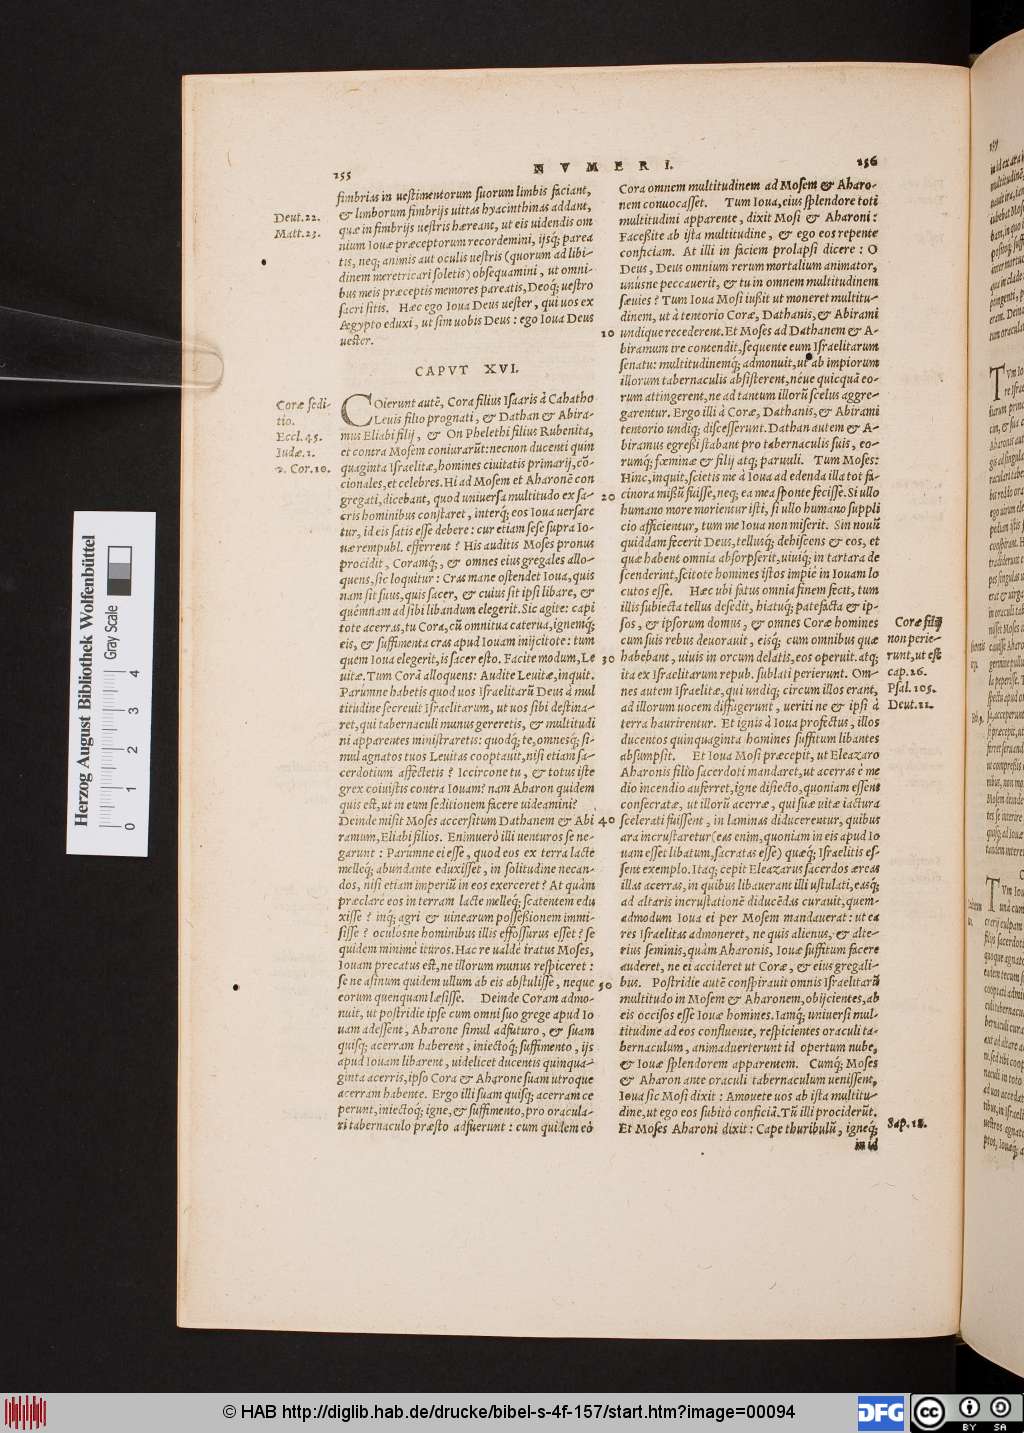 155
NVMERI.
156
fimbrias in uestimentorum suorum limbis faciant,
Deut. 22.
& limborum fimbrijs uittas hyacinthinas addant,
Matt. 23.
quæ in fimbrijs uestris hæreant, ut eis uidendis om
nium Iouæ præceptorum recordemini, ijsq; parea
tis, neq; animis aut oculis uestris (quorum ad libi-
dinem meretricari soletis) obsequamini, ut omni-
bus meis præceptis memores pareatis, Deoq; uestro
sacri sitis. Hæc ego Ioua Deus uester, qui uos ex
Aegypto eduxi, ut sim uobis Deus: ego Ioua Deus
uester.
CAPVT XVI.
Coræ sedi-
tio.
Eccl. 45.
Iudæ. 1.
2. Cor. 10.
COierunt autē, Cora filius Isaaris à Cahatho
Leuis filio prognati, & Dathan & Abira-
mus Eliabi filij, & On Phelethi filius Rubenita,
et contra Mosem coniurarūt: necnon ducenti quin
quaginta Israelitæ, homines ciuitatis primarij, cō-
cionales, et celebres. Hi ad Mosem et Aharonē con
gregati, dicebant, quod uniuersa multitudo ex sa-
cris hominibus constaret, interq; eos Ioua uersare
tur, id eis satis esse debere: cur etiam sese supra Io-
uæ rempubl. efferrent? His auditis Moses pronus
procidit, Coramq́;, & omnes eius gregales allo-
quens, sic loquitur: Cras mane ostendet Ioua, quis
nam sit suus, quis sacer, & cuius sit ipsi libare, &
quémnam ad sibi libandum elegerit. Sic agite: capi
tote acerras, tu Cora, cū omni tua caterua, ignemq́;
eis, & suffimenta cras apud Iouam inijcitote: tum
quem Ioua elegerit, is sacer esto. Facite modum, Le
uitæ. Tum Corā alloquens: Audite Leuitæ, inquit.
Parumne habetis quod uos Israelitarū Deus à mul
titudine secreuit Israelitarum, ut uos sibi destina-
ret, qui tabernaculi munus gereretis, & multitudi
ni apparentes ministraretis: quodq́; te, omnesq́; si-
mul agnatos tuos Leuitas cooptauit, nisi etiam sa-
cerdotium affectetis? Iccirco ne tu, & totus iste
grex couistis contra Iouam? nam Aharon quidem
quis est, ut in eum seditionem facere uideamini?
Deinde misit Moses accersitum Dathanem & Abi
ramum, Eliabi filios. Enimuerò illi uenturos se ne-
garunt: Parumne ei esse, quod eos ex terra lacte
melleq́; abundante eduxisset, in solitudine necan-
dos, nisi etiam imperiū in eos exerceret? At quàm
præclarè eos in terram lacte melleq́; scatentem edu
xisse? inq́; agri & uinearum possessionem immi-
sisse? oculosne hominibus illis effossurus esset? se
quidem minimè ituros. Hac re ualdè iratus Moses,
Iouam precatus est, ne illorum munus respiceret:
se ne asinum quidem ullum ab eis abstulisse, neque
eorum quenquam læsisse. Deinde Coram admo-
nuit, ut postridie ipse cum omni suo grege apud Io
uam adessent, Aharone simul adfuturo, & suam
quisq; acerram haberent, iniectoq́; suffimento, ijs
apud Iouam libarent, uidelicet ducentis quinqua-
ginta acerris, ipso Cora & Aharone suam utroque
acerram habente. Ergo illi suam quisq; acerram ce
perunt, iniectoq́; igne, & suffimento, pro oracula-
ri tabernaculo præsto adfuerunt: cum quidem eò
10
20
30
40
50
Cora omnem multitudinem ad Mosem & Aharo-
nem conuocasset. Tum Ioua, eius splendore toti
multitudini apparente, dixit Mosi & Aharoni:
Facessite ab ista multitudine, & ego eos repente
conficiam. At illi in faciem prolapsi dicere: O
Deus, Deus omnium rerum mortalium animator,
unúsne peccauerit, & tu in omnem multitudinem
sæuies? Tum Ioua Mosi iussit ut moneret multitu-
dinem, ut à tentorio Coræ, Dathanis, & Abirami
undique recederent. Et Moses ad Dathanem & A-
biramum ire contendit, sequente eum Israelitarum
senatu: multitudinemq́; admonuit, ut ab impiorum
illorum tabernaculis absisterent, néue quicquā eo-
rum attingerent, ne ad tantum illorū scelus aggre-
garentur. Ergo illi à Coræ, Dathanis, & Abirami
tentorio undiq; discesserunt. Dathan autem & A-
biramus egressi stabant pro tabernaculis suis, eo-
rumq́; fœminæ & filij atq; paruuli. Tum Moses:
Hinc, inquit, scietis me à Ioua ad edenda illa tot fa-
cinora missū fuisse, neq; ea mea sponte fecisse. Si ullo
humano more morientur isti, si ullo humano suppli
cio afficientur, tum me Ioua non miserit. Sin nouū
quiddam fecerit Deus, tellusq́; dehiscens & eos, et
quæ habent omnia absorpserit, uiuiq́; in tartara de
scenderint, scitote homines istos impiè in Iouam lo
cutos esse. Hæc ubi fatus omnia finem fecit, tum
illis subiecta tellus desedit, hiatuq́; patefacta & ip-
sos, & ipsorum domus, & omnes Coræ homines
cum suis rebus deuorauit, eisq́; cum omnibus quæ
habebant, uiuis in orcum delatis, eos operuit. atq;
ita ex Israelitarum repub. sublati perierunt. Om-
nes autem Israelitæ, qui undiq; circum illos erant,
ad illorum uocem diffugerunt, ueriti ne & ipsi à
terra haurirentur. Et ignis à Ioua profectus, illos
ducentos quinquaginta homines suffitum libantes
absumpsit. Et Ioua Mosi præcepit, ut Eleazaro
Aharonis filio sacerdoti mandaret, ut acerras è me
dio incendio auferret, igne disiecto, quoniam essent
consecratæ, ut illorū acerræ, qui suæ uitæ iactura
scelerati fuissent, in laminas diducerentur, quibus
ara incrustaretur (eas enim, quoniam in eis apud Io
uam esset libatum, sacratas esse) quæq́; Israelitis es-
sent exemplo. Itaq; cepit Eleazarus sacerdos æreas
illas acerras, in quibus libauerant illi ustulati, easq́;
ad altaris incrustationē diducēdas curauit, quem-
admodum Ioua ei per Mosem mandauerat: ut ea
res Israelitas admoneret, ne quis alienus, & alte-
rius seminis, quàm Aharonis, Iouæ suffitum facere
auderet, ne ei accideret ut Coræ, & eius gregali-
bus. Postridie autē conspirauit omnis Israelitarū
multitudo in Mosem & Aharonem, obijcientes, ab
eis occisos esse Iouæ homines. Iamq́; uniuersi mul-
titudine ad eos confluente, respicientes oraculi ta-
bernaculum, animaduerterunt id opertum nube,
& Iouæ splendorem apparentem. Cumq́; Moses
& Aharon ante oraculi tabernaculum uenissent,
Ioua sic Mosi dixit: Amouete uos ab ista multitu-
dine, ut ego eos subitò conficiā. Tū illi prociderūt.
Et Moses Aharoni dixit: Cape thuribulū, ignéq́;
in id
Coræ filij
non perie-
runt, ut est
cap. 26.
Psal. 105.
Deut. 11.
Sap. 18.
Herzog August Bibliothek Wolfenbüttel
Gray Scale
0 1 2 3 4
© HAB http://diglib.hab.de/drucke/bibel-s-4f-157/start.htm?image=00094
DFG
cc
BY SA